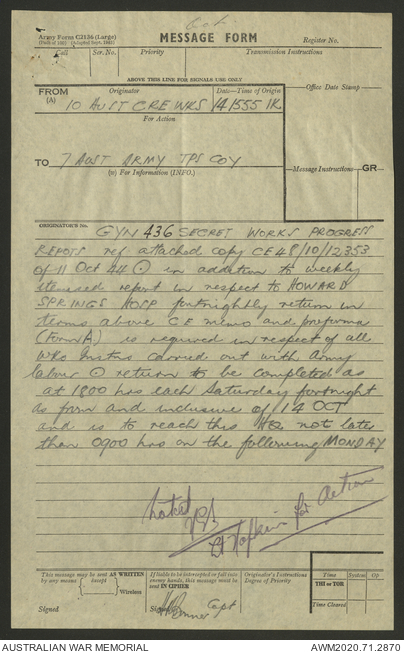 Oct
Army Form C2136 (Large)
MESSAGE FORM
Register No.
Call
Ser. No.
Priority
Transmission Instructions
ABOVE THIS LINE FOR SIGNALS USE ONLY
FROM Originator Date—Time of Origin Office Date Stamp
(A) 10 AUST CRE WKS 141555 IK
For Action
TO 7 AUST ARMY TPS COY
(w) For Information (INFO.)
Message Instructions GR
ORIGINATOR'S No.
GYN 436 SECRET WORKS PROGRESS
REPOTS ref attached copy CE 48/10/12353
of 11 Oct 44 ⊙ in addition to weekly
itemised report in respect to HOWARD
SPRINGS HOSP fortnightly return in
terms above CE memo and proforma
(Form A) is required in respect of all
wks carried out with Army
labor ⊙ return to be completed as
at 1800 hrs each Saturday fortnight
as from and inclusive of 14 OCT
and is to reach this HQ not later
than 0900 hrs on the following MONDAY
Noted
Lt Hopkins for Action
This message may be sent AS WRITTEN
by any means except Wireless
If liable to be intercepted or fall into
enemy hands, this message must be
sent IN CIPHER
Originator's Instructions
Degree of Priority
Time System Op
THI or TOR
Time Cleared
Signed
Signed Capt
AUSTRALIAN WAR MEMORIAL
AWM2020.71.2870